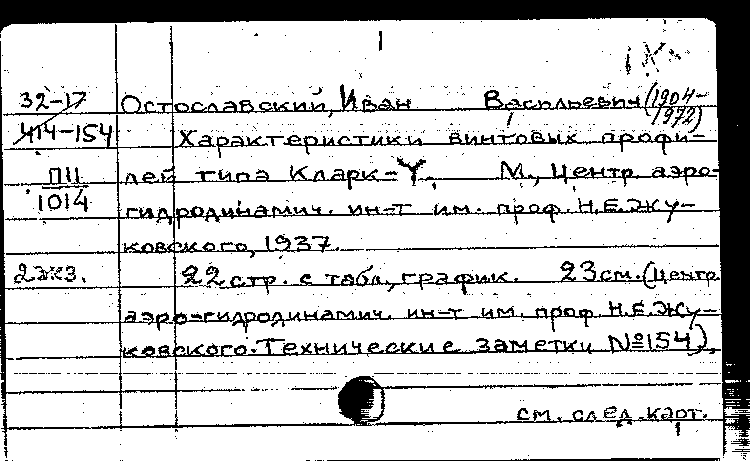 32-17 Остославский, Иван Васильевич (1904-
1972)
414-154 Характеристики винтовых профи-
П11 лей типа Кларк-Y. М., Центр. аэро-
1014 гидродинамич. ин-т им. проф. Н.Е.Жу-
ковского, 1937.
2экз. 22 стр. с табл., график. 23 см. (Центр.
аэро-гидродинамич. ин-т им. проф. Н.Е.Жу-
ковского. Технические заметки №154).
см. след. карт.